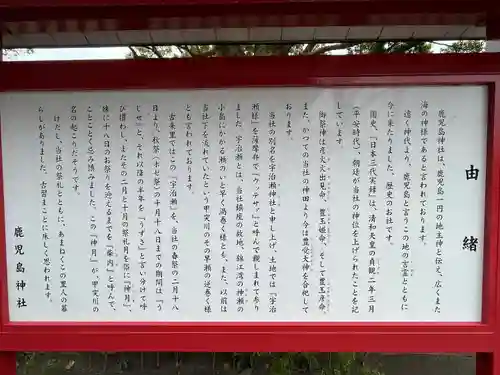 由緒
鹿児島神社は、鹿児島一円の地主神と伝え、広くまた
海の神様であると言われております。
遠く神代より、鹿児島と言うこの地の言霊とともに
今に来たりました、歴史のお社です。
国史、「日本三代実録」は、清和天皇の貞観二年三月
(平安時代)、朝廷が当社の神位を上げられたことを記
しています。
御祭神は彦火火出見命、豊玉姫命、そして豊玉彦命、
また、かつての当社の神田より今は豊受大神を合祀して
おります。
当社の別名を宇治瀬神社と申し上げ、土地では「宇治
瀬様」を薩摩弁で「ウッサァ」と呼んで親しまれて参り
ました。宇治瀬とは、当社鎮座の故地、錦江湾の神瀬の
小島にかかる瀬のいと早く渦巻く様とも、また、以前は
当社下を流れていたという甲突川のその早瀬の逆巻く様
とも言われております。
古来里ではこの「宇治瀬」を、当社の春祭の二月十八
日より、秋祭(ホゼ祭)の十月十八日までの期間は「う
じせ」と、それ以降の半年を「うずさ」と言い分けて呼
び慣わし、またその二月と十月の祭礼月を俗に「神月」、
殊に十八日のお祭りを迎えるまでを「柴内」と呼んで、
ことごとく忌み慎みました。この「神月」が、甲突川の
名の起こりだそうです。
けだし、当社の祭礼とともに、あまねくこの里人の暮
らしがありました。古習まことに床しく思われます。
鹿児島神社